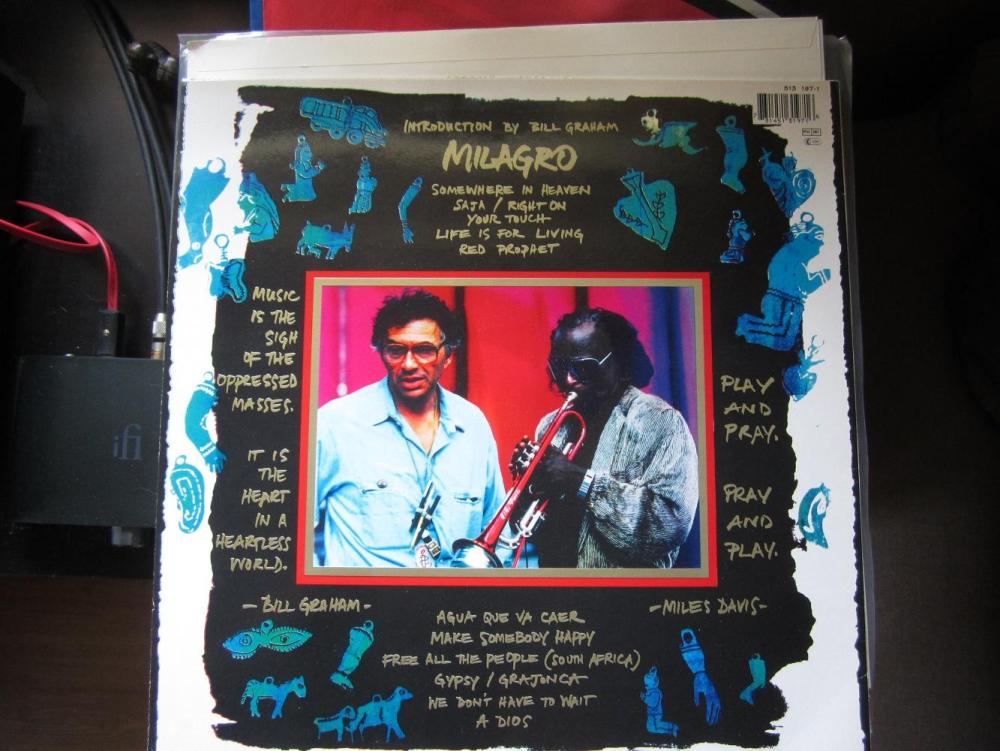 513 197-1
INTRODUCTION BY BILL GRAHAM
MILAGRO
SOMEWHERE IN HEAVEN
SAJA / RIGHT ON
YOUR TOUCH
LIFE IS FOR LIVING
RED PROPHET
MUSIC
IS THE
SIGH
OF THE
OPPRESSED
MASSES.
IT IS
THE
HEART
IN A
HEARTLESS
WORLD.
- BILL GRAHAM -
PLAY
AND
PRAY.
PRAY
AND
PLAY.
- MILES DAVIS -
AGUA QUE VA CAER
MAKE SOMEBODY HAPPY
FREE ALL THE PEOPLE (SOUTH AFRICA)
GYPSY / GRAJONCA
WE DON'T HAVE TO WAIT
A DIOS
ifi